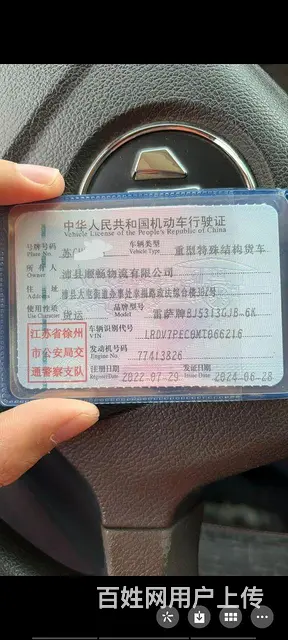 中华人民共和国机动车行驶证
Vehicle License of the People's Republic of China
号牌号码 苏C 车辆类型 重型特殊结构货车
Plate No. Vehicle Type
所有人 沛县顺畅物流有限公司
Owner
住址 沛县大屯街道办事处幸福路政法综合楼302号
Address
使用性质 货运 品牌型号 雷萨牌BJ5313GJB-6K
Use Character Model
江苏省徐州 车辆识别代号 LRDV7PEC0MT066216
VIN
市公安局交 发动机号码 77413826
Engine No.
通警察支队 注册日期 2022-07-29 发证日期 2024-06-28
Register Date Issue Date
百姓网用户上传